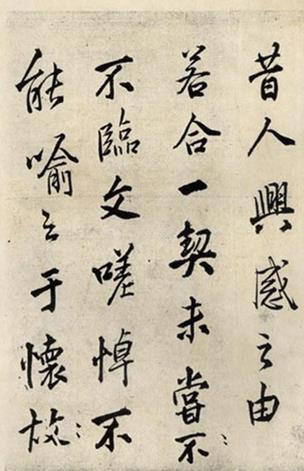 昔人興感之由
若合一契未嘗不
不臨文嗟悼不
能喻之于懷故